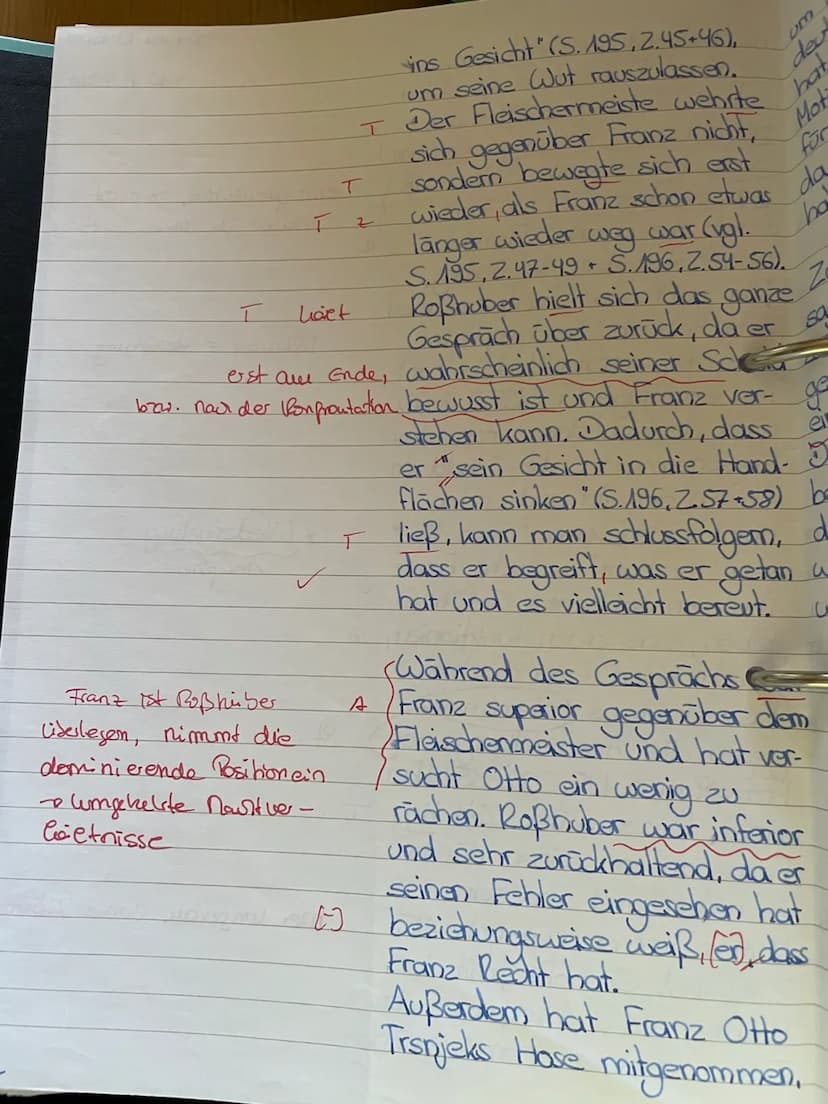 ins Gesicht" (S. 195, Z. 45+46),
um seine Wut rauszulassen.
T Der Fleischermeiste wehrte
sich gegenüber Franz nicht,
T sondern bewegte sich erst
T Z wieder, als Franz schon etwas
länger wieder weg war (vgl.
S. 195, Z. 47-49 + S. 196, Z. 54-56).
T hält Roßhuber hielt sich das ganze
Gespräch über zurück, da er
erst am Ende, wahrscheinlich seiner
bzw. nach der Konfrontation bewusst ist und Franz ver-
stehen kann. Dadurch, dass
er "sein Gesicht in die Hand-
flächen sinken" (S. 196, Z. 57+58)
T ließ, kann man schlussfolgern,
✓ dass er begreift, was er getan
hat und es vielleicht bereut.
Während des Gesprächs
A Franz superior gegenüber dem
Fleischermeister und hat ver-
sucht Otto ein wenig zu
rächen. Roßhuber war inferior
und sehr zurückhaltend, da er
seinen Fehler eingesehen hat
[-] beziehungsweise weiß, [er], dass
Franz Recht hat.
Außerdem hat Franz Otto
Trsnjeks Hose mitgenommen,
Franz ist Roßhuber
überlegen, nimmt die
dominierende Position ein
→ umgekehrte Machtver-
hältnisse
um
hat
für
da